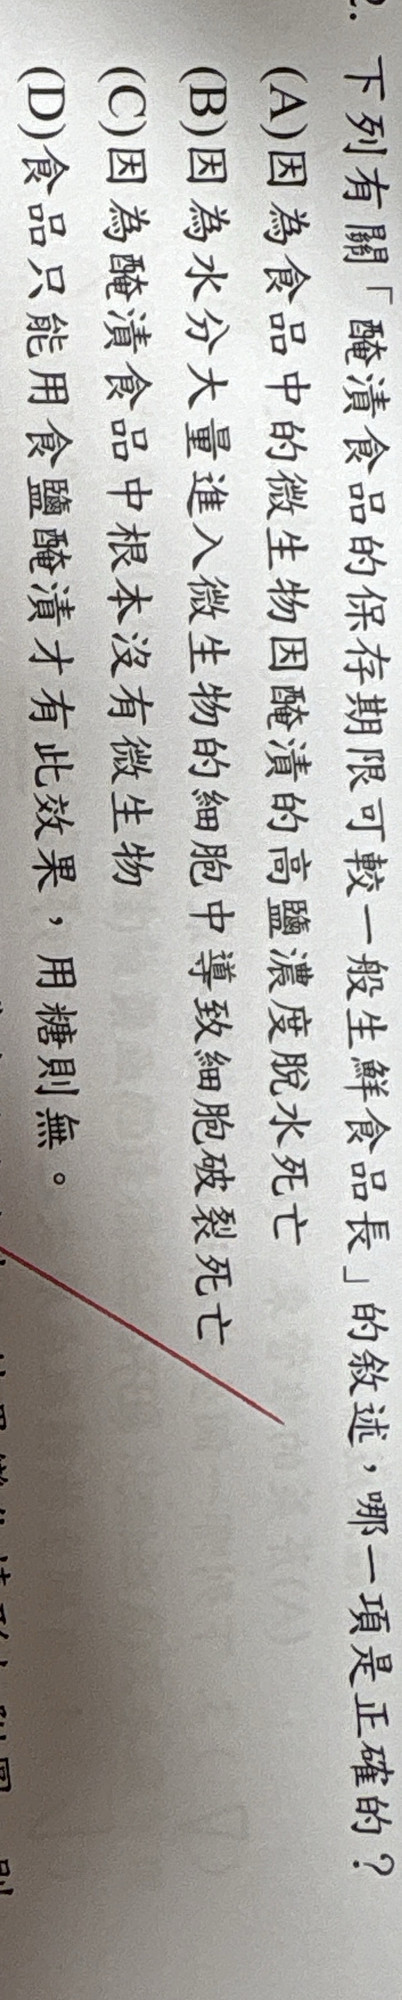 2. 下列有關「醃漬食品的保存期限可較一般生鮮食品長」的敘述，哪一項是正確的？
(A)因為食品中的微生物因醃漬的高鹽濃度脫水死亡
(B)因為水分大量進入微生物的細胞中導致細胞破裂死亡
(C)因為醃漬食品中根本沒有微生物
(D)食品只能用食鹽醃漬才有此效果，用糖則無。